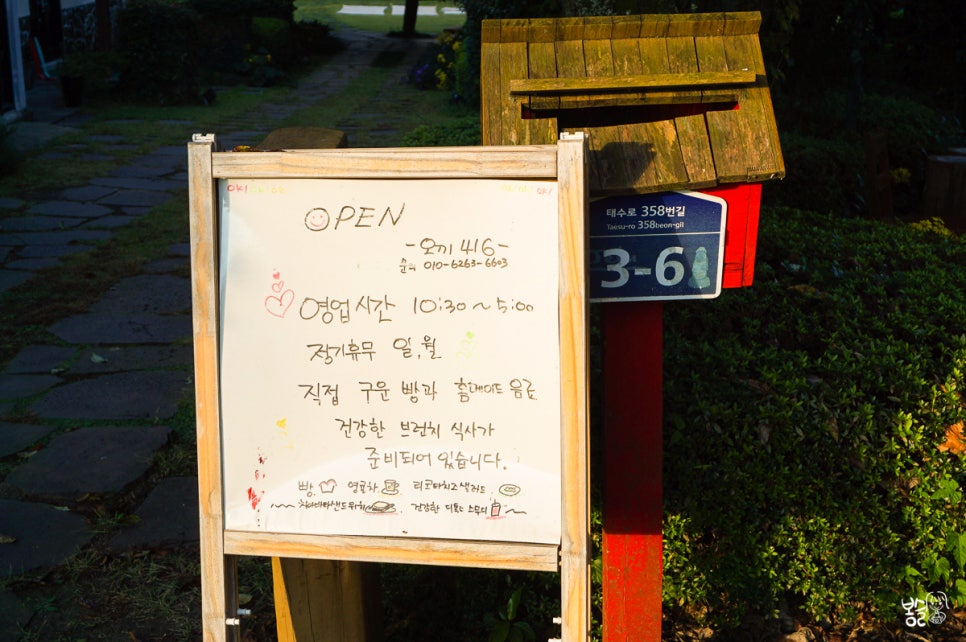 OPEN
-오끼 416-
010-6263-6603
영업시간 10:30~5:00
정기휴무 일,월
직접 구운 빵과 홈메이드 음료
건강한 브런치 식사가
준비되어 있습니다.
빵 연꽃차 리코타치즈샐러드
치아바타샌드위치 건강한 디톡스 스무디
태수로 358번길
Taesu-ro 358beon-gil
3-6
봉실